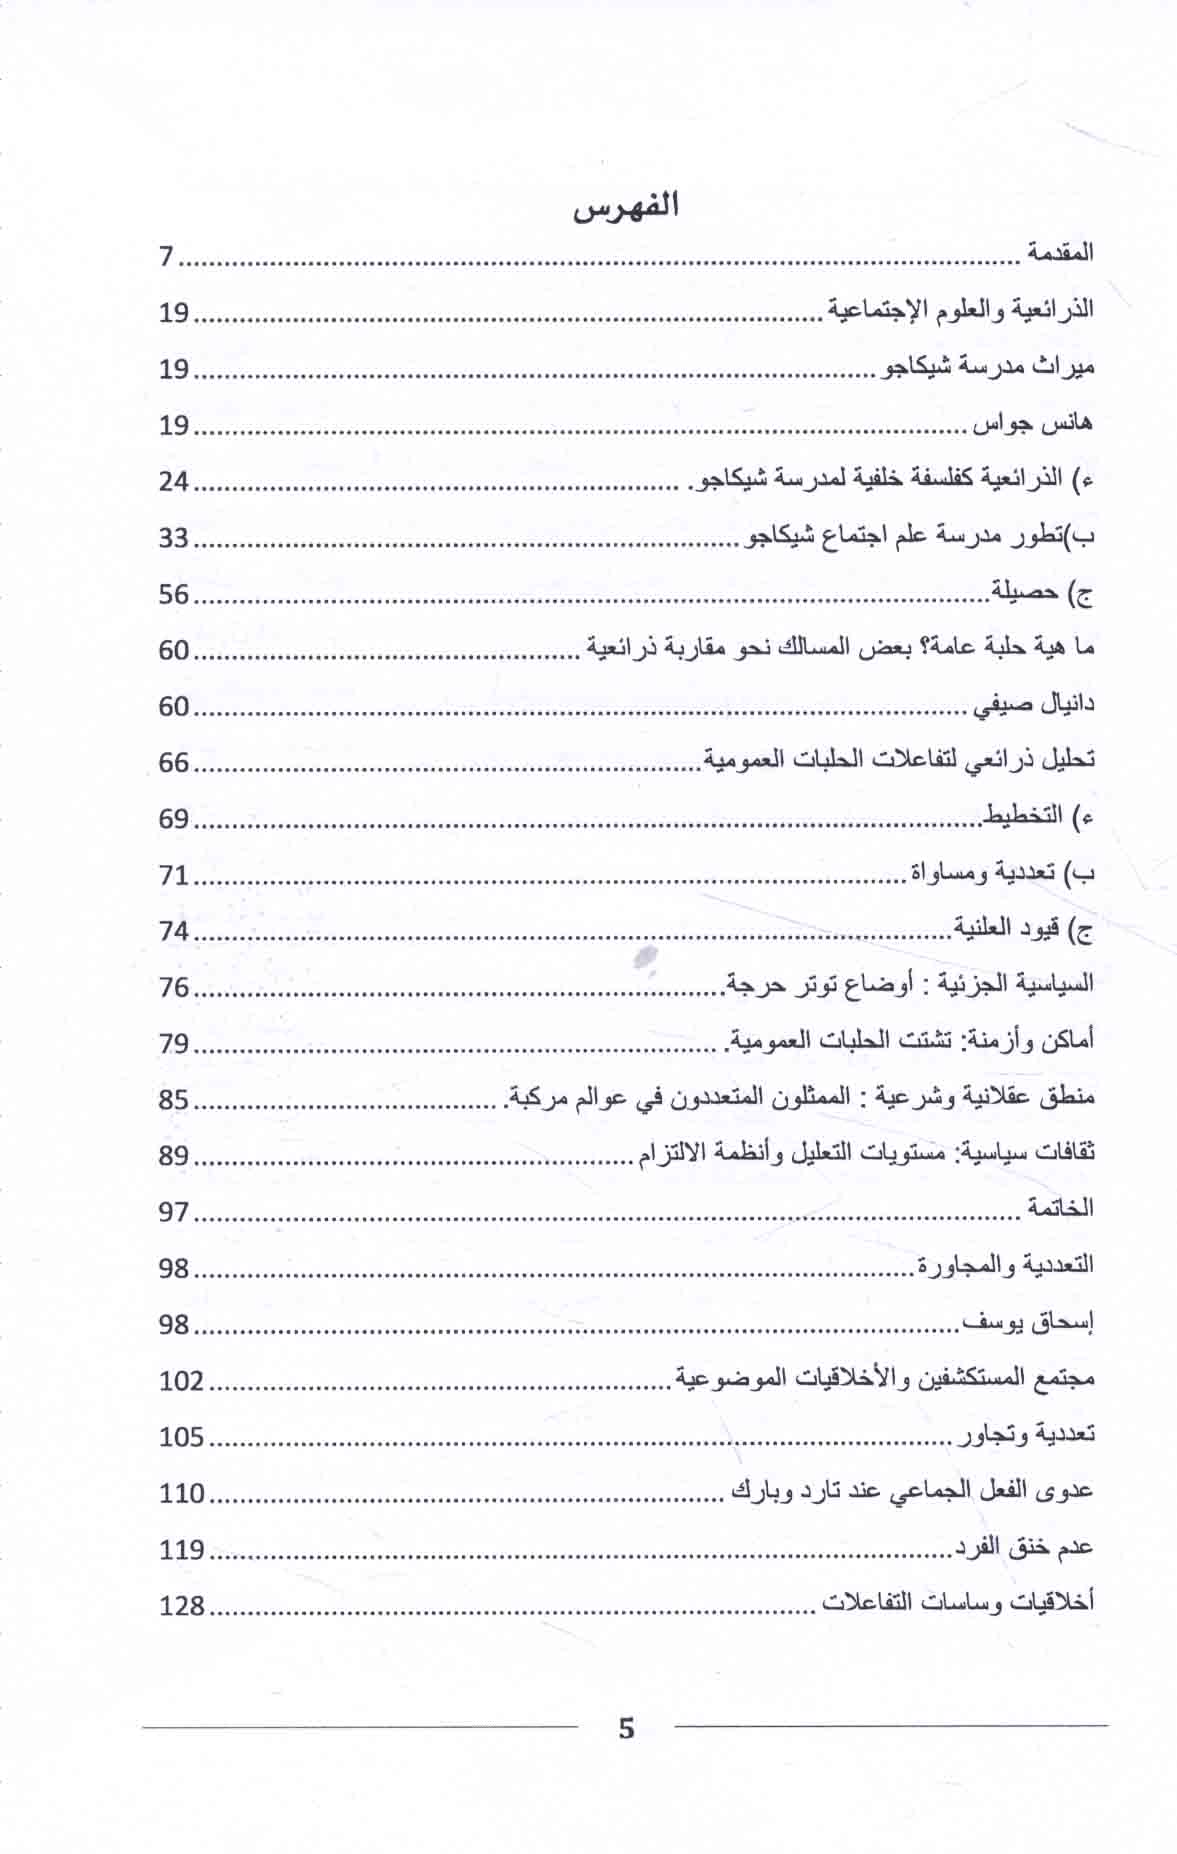 الفهرس
المقدمة ........ 7
الذرائعية والعلوم الإجتماعية ........ 19
ميراث مدرسة شيكاجو ........ 19
هانس جواس ........ 19
ء) الذرائعية كفلسفة خلفية لمدرسة شيكاجو. ........ 24
ب)تطور مدرسة علم اجتماع شيكاجو ........ 33
ج) حصيلة ........ 56
ما هية حلبة عامة؟ بعض المسالك نحو مقاربة ذرائعية ........ 60
دانيال صيفي ........ 60
تحليل ذرائعي لتفاعلات الحلبات العمومية ........ 66
ء) التخطيط ........ 69
ب) تعددية ومساواة ........ 71
ج) قيود العلنية ........ 74
السياسية الجزئية : أوضاع توتر حرجة ........ 76
أماكن وأزمنة: تشتت الحلبات العمومية. ........ 79
منطق عقلانية وشرعية : الممثلون المتعددون في عوالم مركبة. ........ 85
ثقافات سياسية: مستويات التعليل وأنظمة الالتزام ........ 89
الخاتمة ........ 97
التعددية والمجاورة ........ 98
إسحاق يوسف ........ 98
مجتمع المستكشفين والأخلاقيات الموضوعية ........ 102
تعددية وتجاور ........ 105
عدوى الفعل الجماعي عند تارد وبارك ........ 110
عدم خنق الفرد ........ 119
أخلاقيات وساسات التفاعلات ........ 128
5